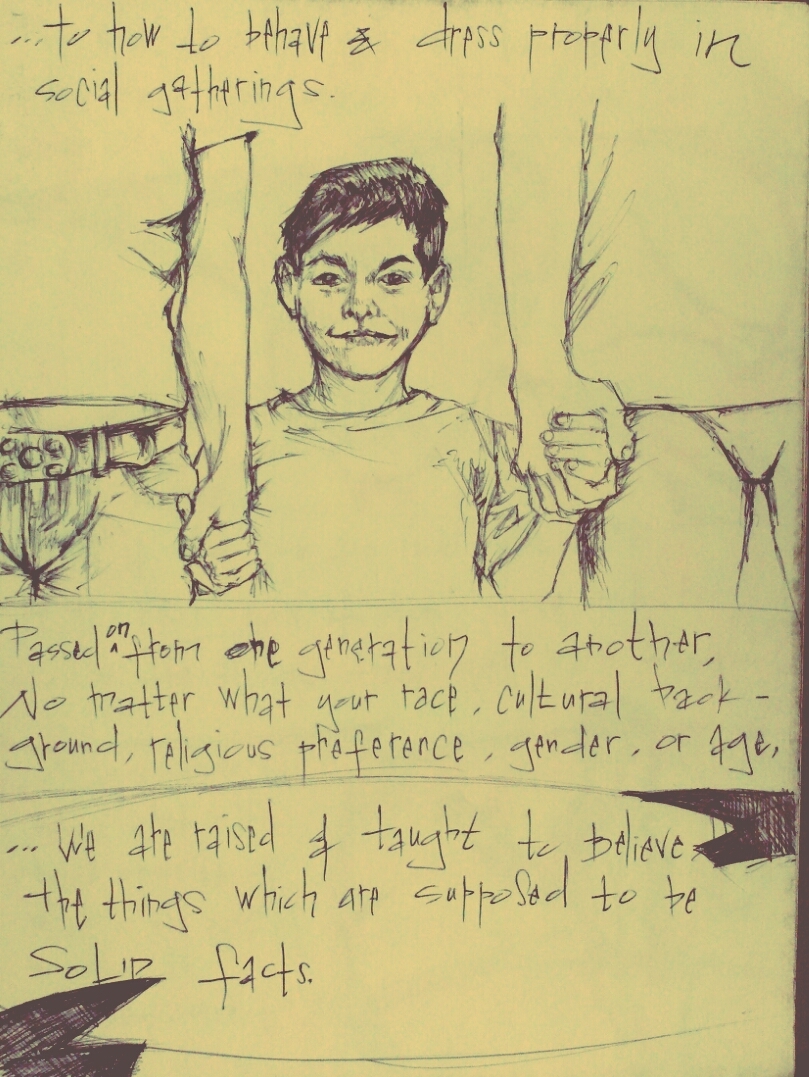 ...to how to behave & dress properly in
social gatherings.
Passed on from one generation to another,
No matter what your race, cultural back-
ground, religious preference, gender, or age,
... We are raised & taught to believe
the things which are supposed to be
SOLID facts.